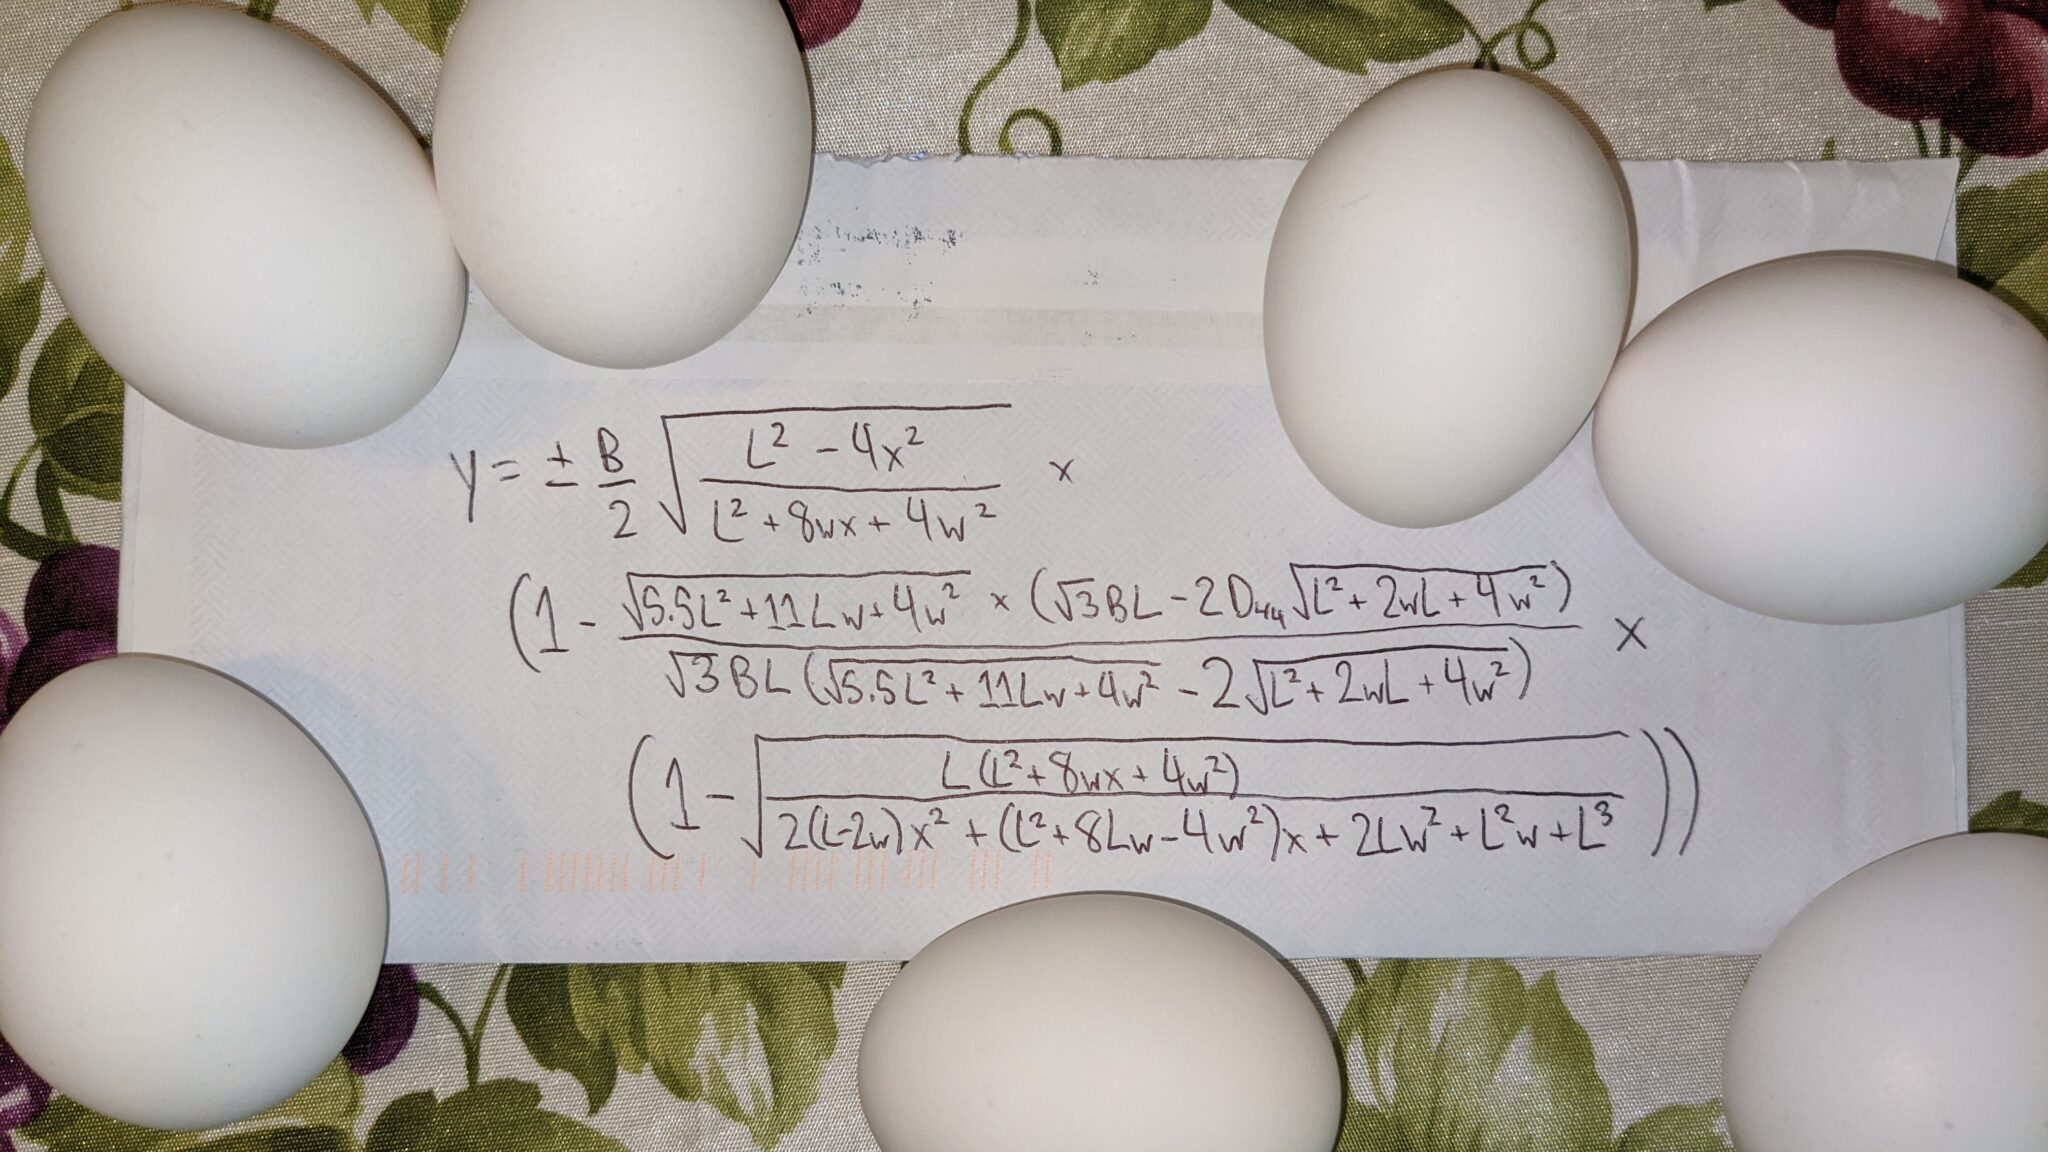 y = ± B/2 √((L² - 4x²)/(L² + 8wx + 4w²)) ×
(1 - (√(5.5L² + 11Lw + 4w²) × (√3BL - 2D₄₄√(L² + 2wL + 4w²)))/(√3BL(√(5.5L² + 11Lw + 4w²) - 2√(L² + 2wL + 4w²))) ×
(1 - √(L(L² + 8wx + 4w²)/(2(L-2w)x² + (L² + 8Lw - 4w²)x + 2Lw² + L²w + L³))))